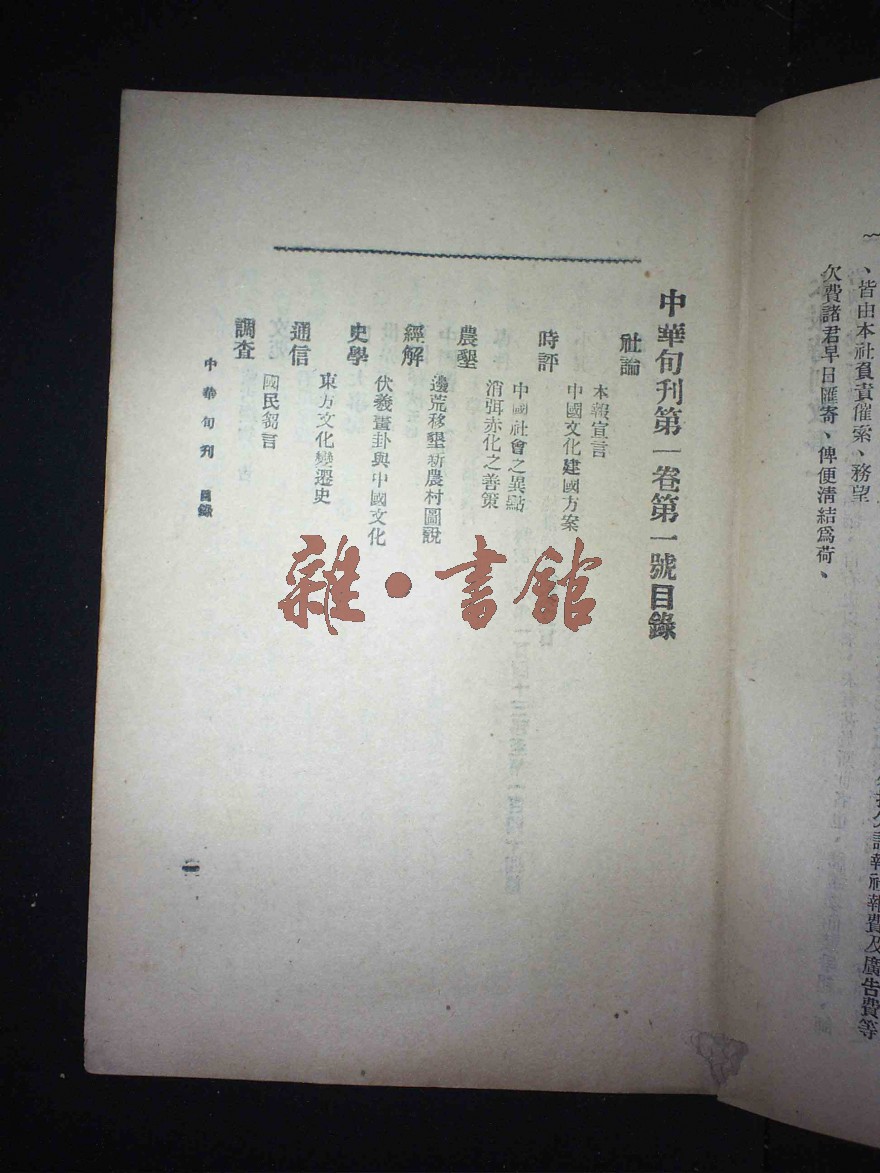 、皆由本社負責催索、務望
欠費諸君早日匯寄、俾便清結爲荷、
報社報費及廣告費等
中華旬刊第一卷第一號目錄
社論
本報宣言
中國文化建國方案
時評
中國社會之異點
消弭赤化之善策
農墾
邊荒移墾新農村圖說
經解
伏羲畫卦與中國文化
史學
東方文化變遷史
通信
國民芻言
調査
中華旬刊 目錄
一
雜·書館